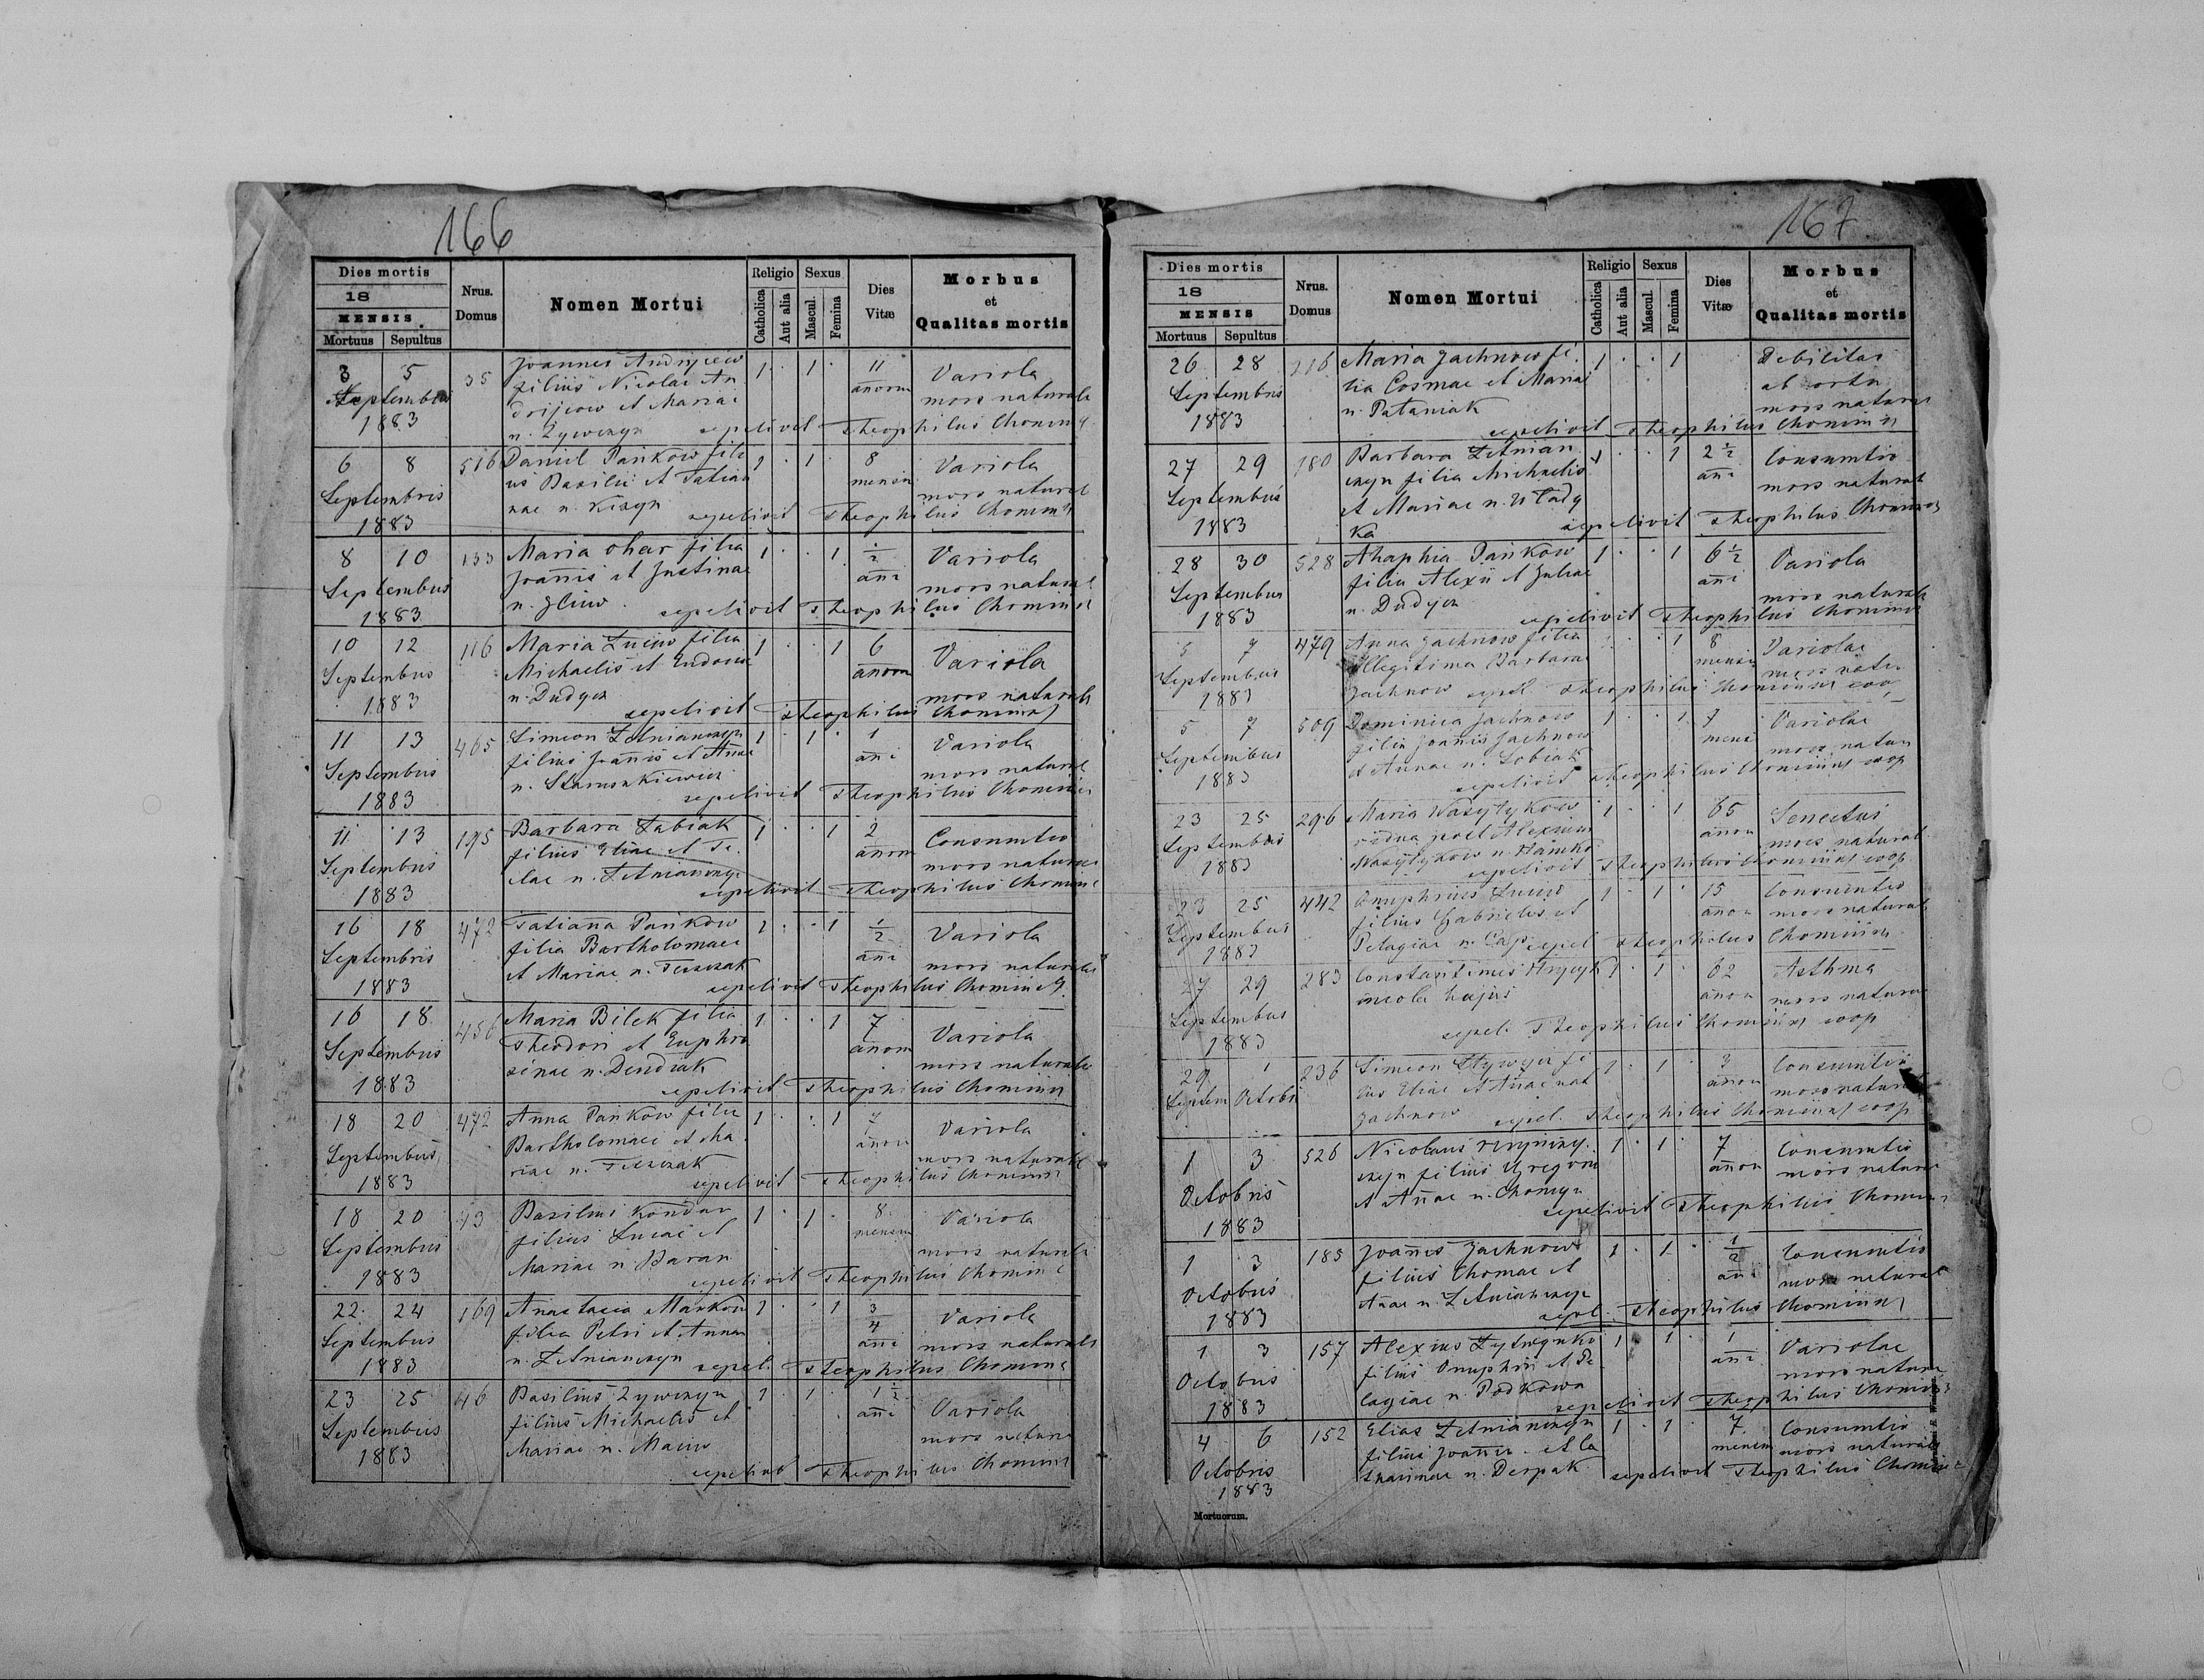 166
Dies mortis
18
MENSIS
Mortuus Sepultus
Nrus. Domus
Nomen Mortui
Religio
Catholica
Aut alia
Sexus
Mascul.
Femina
Dies Vitæ
Morbus
et
Qualitas mortis
3 5 35 Joannes Andrijcow 1 . 1 . 11 Variola
Septembris filius Nicolai An anorm mors naturale
1883 drijcow et Mariae
n. Zywczyn sepelivit Theophilus
6 8 516 Daniel Pańkow fili 1 . 1 . 8 Variola
Septembris us Basilii et Tatian mensiu mors natural
1883 nae n. sepelivit Theophilus
8 10 133 Maria Ohar filia 1 . . 1 1/2 Variola
Septembris Joannis et Justinae ani mors natural
1883 n. sepelivit Theophilus
10 12 116 Maria Luciw filia 1 . . 1 6 Variola
Septembris Michaelis et Eudocia anorm
1883 n. Dudycz mors naturale
sepelivit Theophilus
11 13 465 Simeon Letnianczyn 1 . 1 . 1 Variola
Septembris filius Joannis et Annae ani mors natural
1883 n. sepelivit Theophilus
11 13 195 Barbara Labiak 1 . . 1 2 Consumtio
Septembris filius Eliae et Te anorm mors natural
1883 clae n. Letnianczyn
sepelivit Theophilus
16 18 472 Tatianna Pańkow 1 . . 1 1/2 Variola
Septembris filia Bartholomaei ani mors naturale
1883 et Mariae n.
sepelivit Theophilus
16 18 456 Maria Bilek filia 1 . . 1 7 Variola
Septembris Theodori et Euphro anorm mors naturale
1883 sinae n. Dendzak
sepelivit Theophilus
18 20 472 Anna Pańkow filia 1 . . 1 7 Variola
Septembris Bartholomaei et Ma anorm mors naturale
1883 riae n.
sepelivit Theophilus
18 20 43 Basilius Kondar 1 . 1 . 8 Variola
Septembris filius Lucae et mensium mors naturale
1883 Mariae n. Baran
sepelivit Theophilus
22 24 169 Anastasia Mankow 1 . . 1 3/4 Variola
Septembris filia Petri et Annae ani mors naturale
1883 n. Letnianczyn sepel. Theophilus
23 25 46 Basilius Zywczyn 1 . 1 . 1 1/2 Variola
Septembris filius Michaelis et ani mors natura
1883 Mariae n.
sepelivit Theophilus
167
Dies mortis
18
MENSIS
Mortuus Sepultus
Nrus. Domus
Nomen Mortui
Religio
Catholica
Aut alia
Sexus
Mascul.
Femina
Dies Vitæ
Morbus
et
Qualitas mortis
26 28 216 Maria Jachnow fi 1 . . 1 Debilitas
Septembris lia Cosmae et Mariae ab ortu
1883 n. Pataniak mors natura
sepelivit Theophilus
27 29 180 Barbara Letnian 1 . . 1 2 1/2 Consumtio
Septembris czyn filia Michaelis ani mors natural
1883 et Mariae n.
ka sepelivit Theophilus
28 30 528 Ahaphia Pańkow 1 . . 1 6 1/2 Variola
Septembris filia Alexii et Juliae ani mors naturale
1883 n. Dudycz sepelivit Theophilus
5 7 479 Anna Jachnow filia . . 1 8 Variolae
Septembris illegitima Barbarae mensiu mors natu
1883 Jachnow sepel Theophilus coop
5 7 509 Dominica Jachnow 1 . . 1 7 Variolae
Septembris filia Joannis Jachnow mensi mors natura
1883 et Annae n. Lobiak
sepelivit Theophilus coop
23 25 296 Maria Wasylykow 1 . . 1 65 Senectus
Septembris vidua post Alexium anor mors natural
1883 Wasylykow n.
sepelivit Theophilus coop
23 25 442 Onuphrius Luciw 1 . 1 . 15 Consumtio
Septembris filius Gabrielis et anor mors natural
1883 Pelagiae n. sepel Theophilus
27 29 283 Constantinus 1 . 1 . 62 Asthma
Septembris incola hujus anor mors natura
1883 sepel. Theophilus coop
29 1 236 Simeon fi 1 . 1 . 3 Consumtio
Septem Octobr lius Eliae et Annae nat anor mors natural
Jachnow sepel. Theophilus coop
1 3 526 Nicolaus 1 . 1 . 7 Consumtio
Octobris czyn filius Gregorii anor mors natura
1883 et Annae n.
sepelivit Theophilus
1 3 185 Joannes Jachnow 1 . 1 . 1/2 Consumtio
Octobris filius Thomae et ani mors natural
1883 Annae n. Letnianczyn
sepel. Theophilus
1 3 157 Alexius 1 . 1 . 1 Variolae
Octobris filius Onuphrii et Pe ani mors natura
1883 lagiae n. Podkowa
sepelivit Theophilus
4 6 152 Elias Letnianczyn 1 . 1 . 7 Consumtio
Octobris filius Joannis et Ca mensiu mors naturale
1883 tharinae n. Derpak sepelivit Theophilus
Mortuorum.